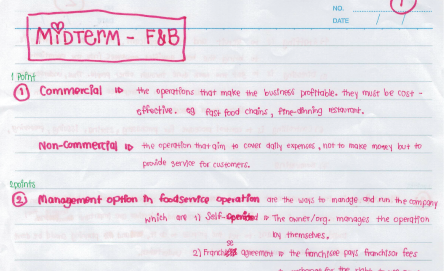 NO. 1
DATE / /
MIDTERM - F&B
1 Point
① Commercial ⇨ the operations that make the business profitable. they must be cost -
effective. eg fast food chains, fine-dinning restaurant.
Non-Commercial ⇨ the operation that aim to cover daily expences, not to make money but to
provide service for customers.
2points
② Management option in foodservice operation are the ways to manage and run the company
which are 1) Self-operated ⇨ The owner/org. manages the operation
by themselves.
2) Franchise agreement ⇨ the franchisee pays franchisor fees